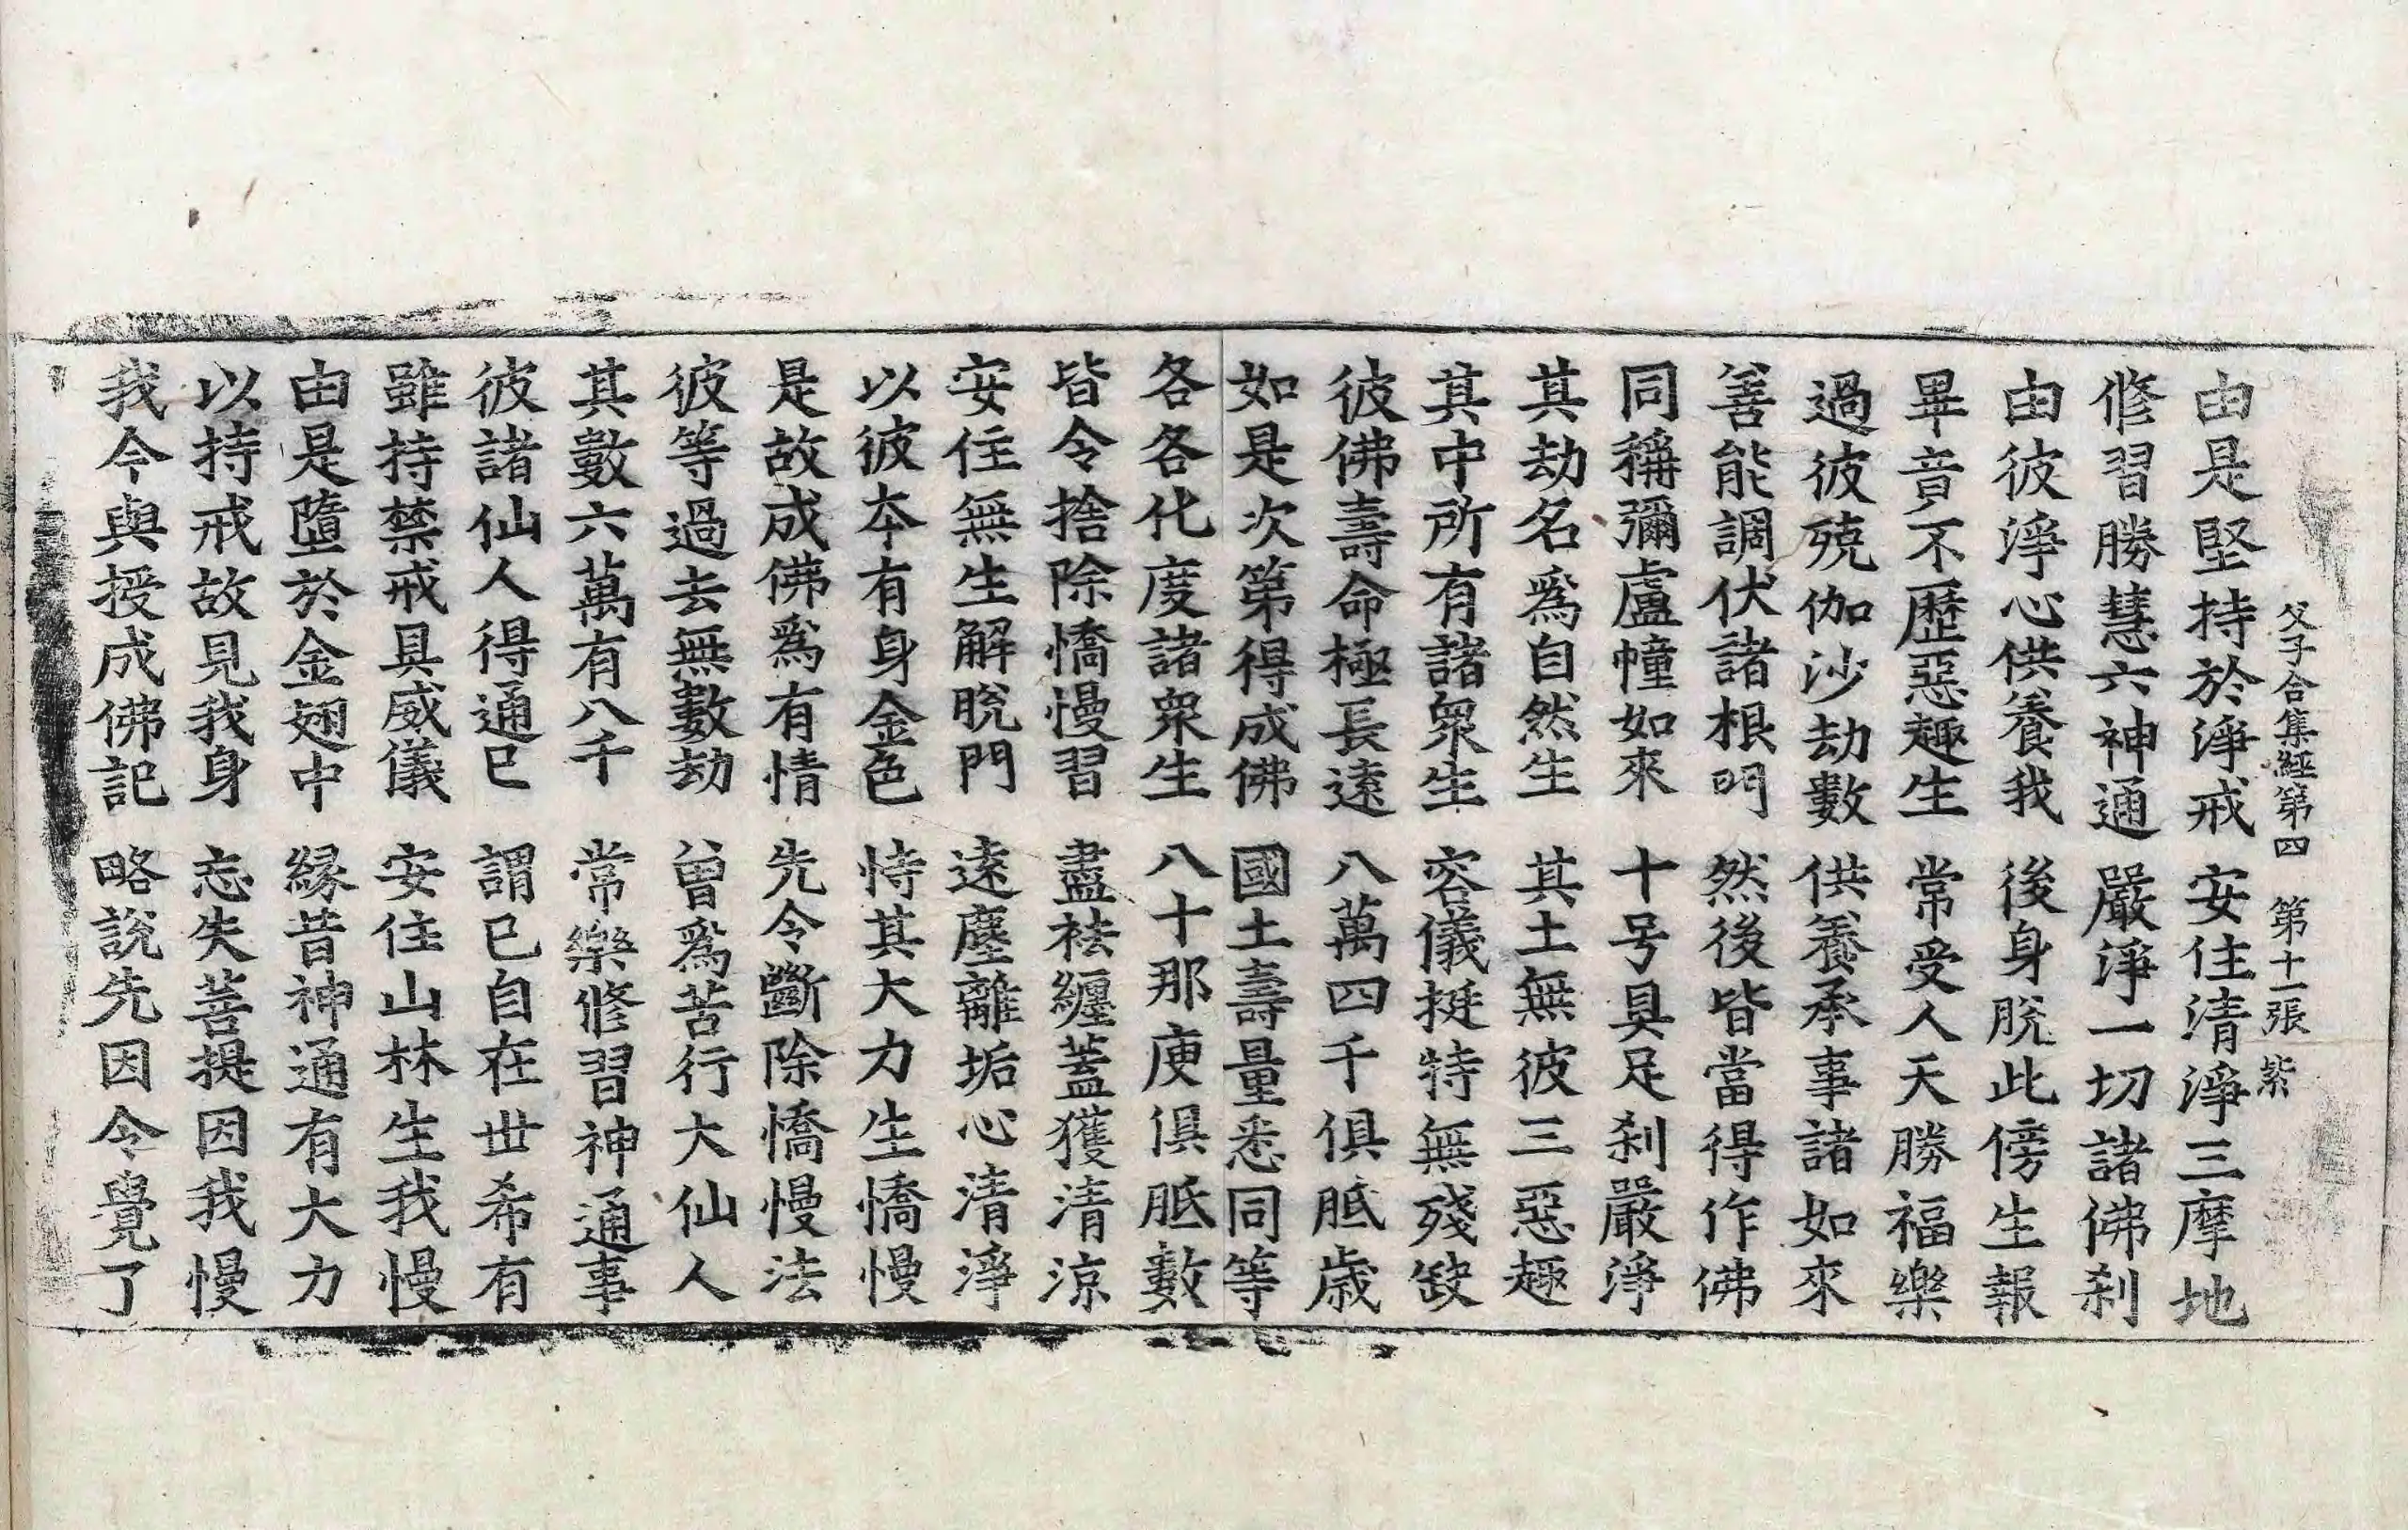 父子合集經第四　第十一張　紫
由是堅持於淨戒　安住清淨三摩地
修習勝慧六神通　嚴淨一切諸佛刹
由彼淨心供養我　後身脫此傍生報
畢竟不歷惡趣生　常受人天勝福樂
過彼殑伽沙劫數　供養承事諸如來
善能調伏諸根門　然後皆當得作佛
同稱彌盧幢如來　十号具足刹嚴淨
其劫名爲自然生　其土無彼三惡趣
其中所有諸衆生　容儀挺特無殘缺
彼佛壽命極長遠　八萬四千俱胝歲
如是次第得成佛　國土壽量悉同等
各各化度諸衆生　八十那庾俱胝數
皆令捨除憍慢習　盡袪纏蓋獲清涼
安住無生解脫門　遠塵離垢心清淨
以彼本有身金色　恃其大力生憍慢
是故成佛爲有情　先令斷除憍慢法
彼等過去無數劫　曾爲苦行大仙人
其數六萬有八千　常樂修習神通事
彼諸仙人得通已　謂已自在世希有
雖持禁戒具威儀　安住山林生我慢
由是墮於金翅中　緣昔神通有大力
以持戒故見我身　忘失菩提因我慢
我今與授成佛記　略說先因令覺了